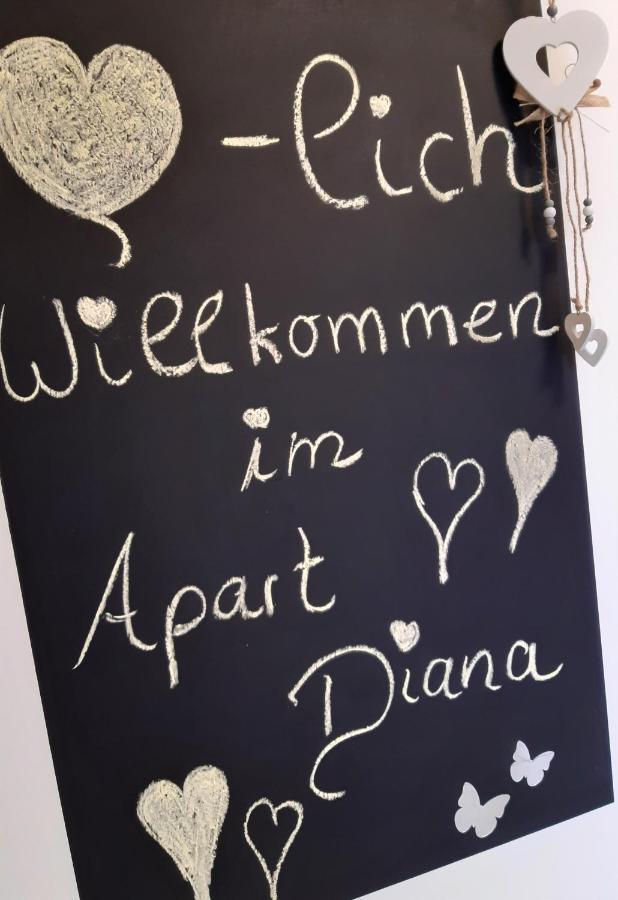 -lich
Willkommen
im
Apart
Diana